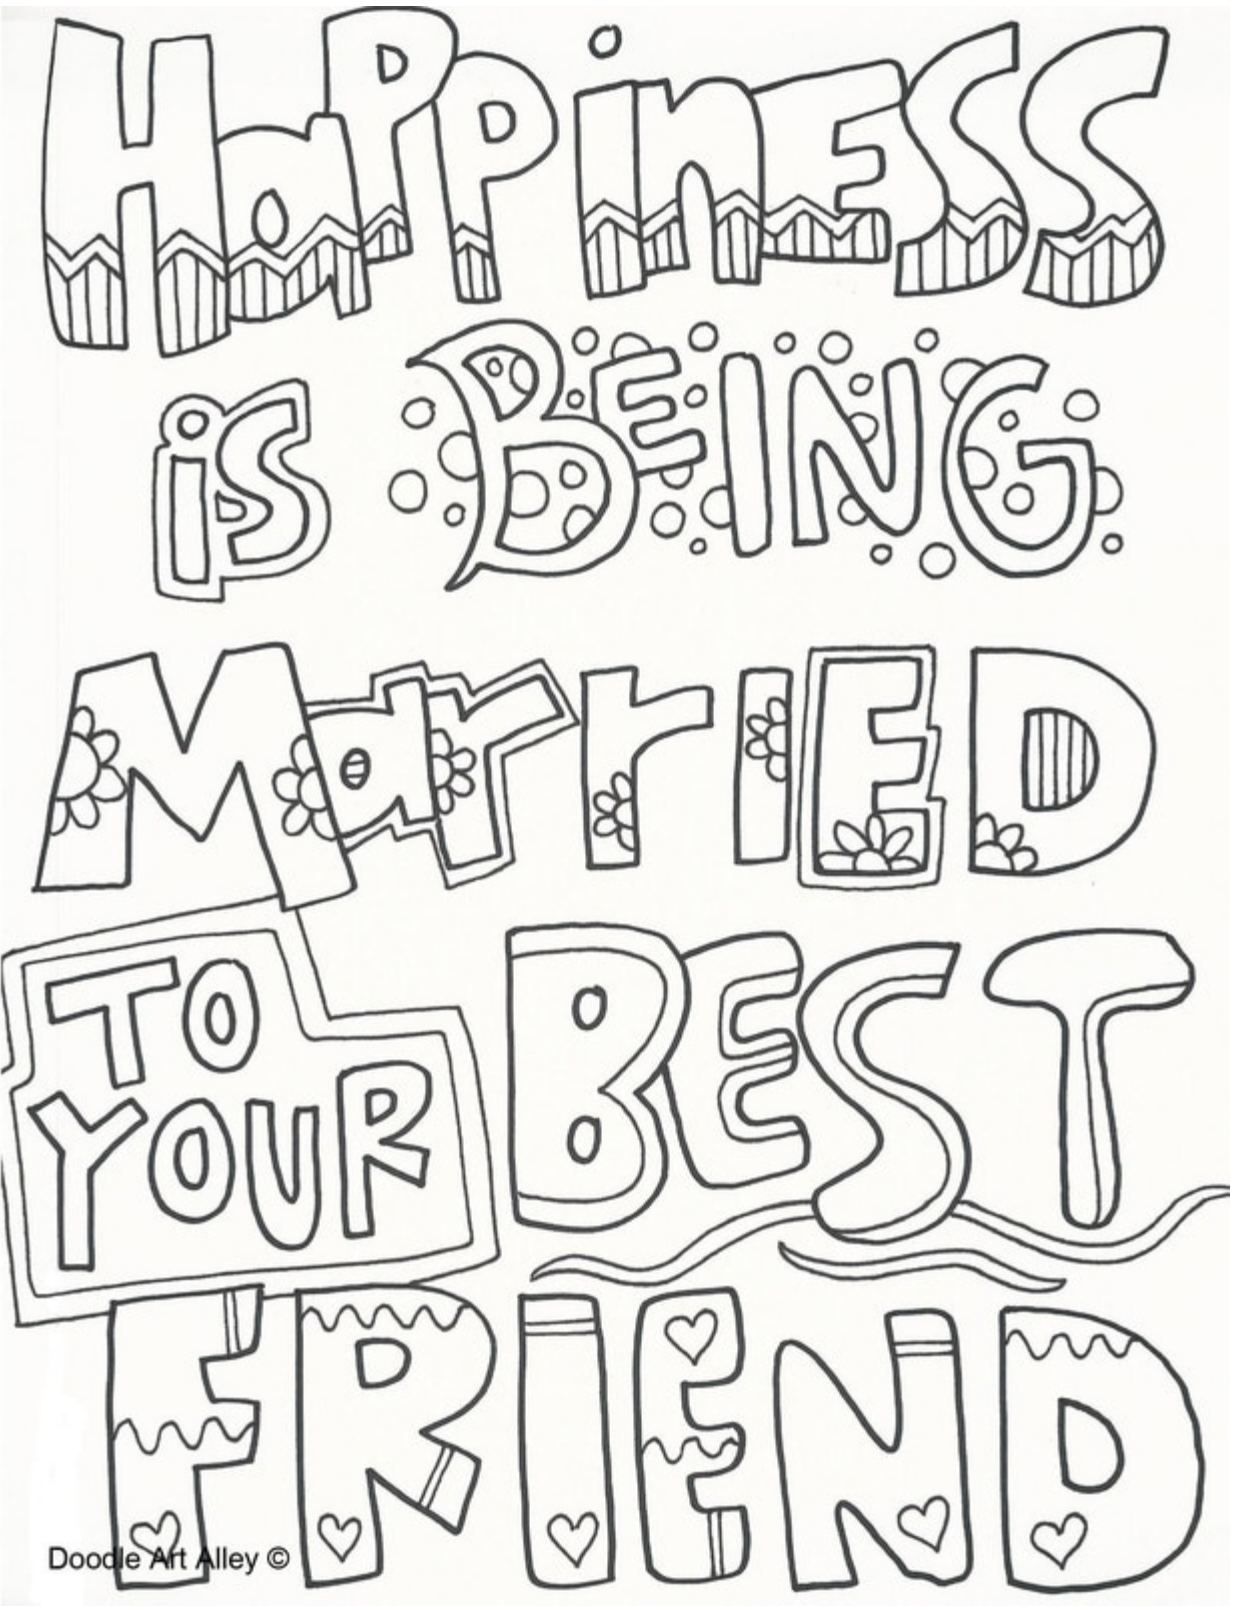 HaPPinESS
iS BEING
MarrIED
TO
YOUR
BEST
FRIEND
Doodle Art Alley ©